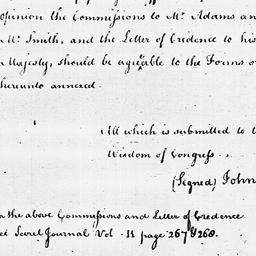 opinion the Commissions to Mr. Adams an
Mr. Smith, and the Letter of Credence to his
Majesty, should be agreeable to the Forms o
hereunto annexed.
All which is submitted to t
Wisdom of Congress.
(Signed) John
the above Commissions and Letter of Credence
Secret Journal Vol. 11 page 267 & 268.